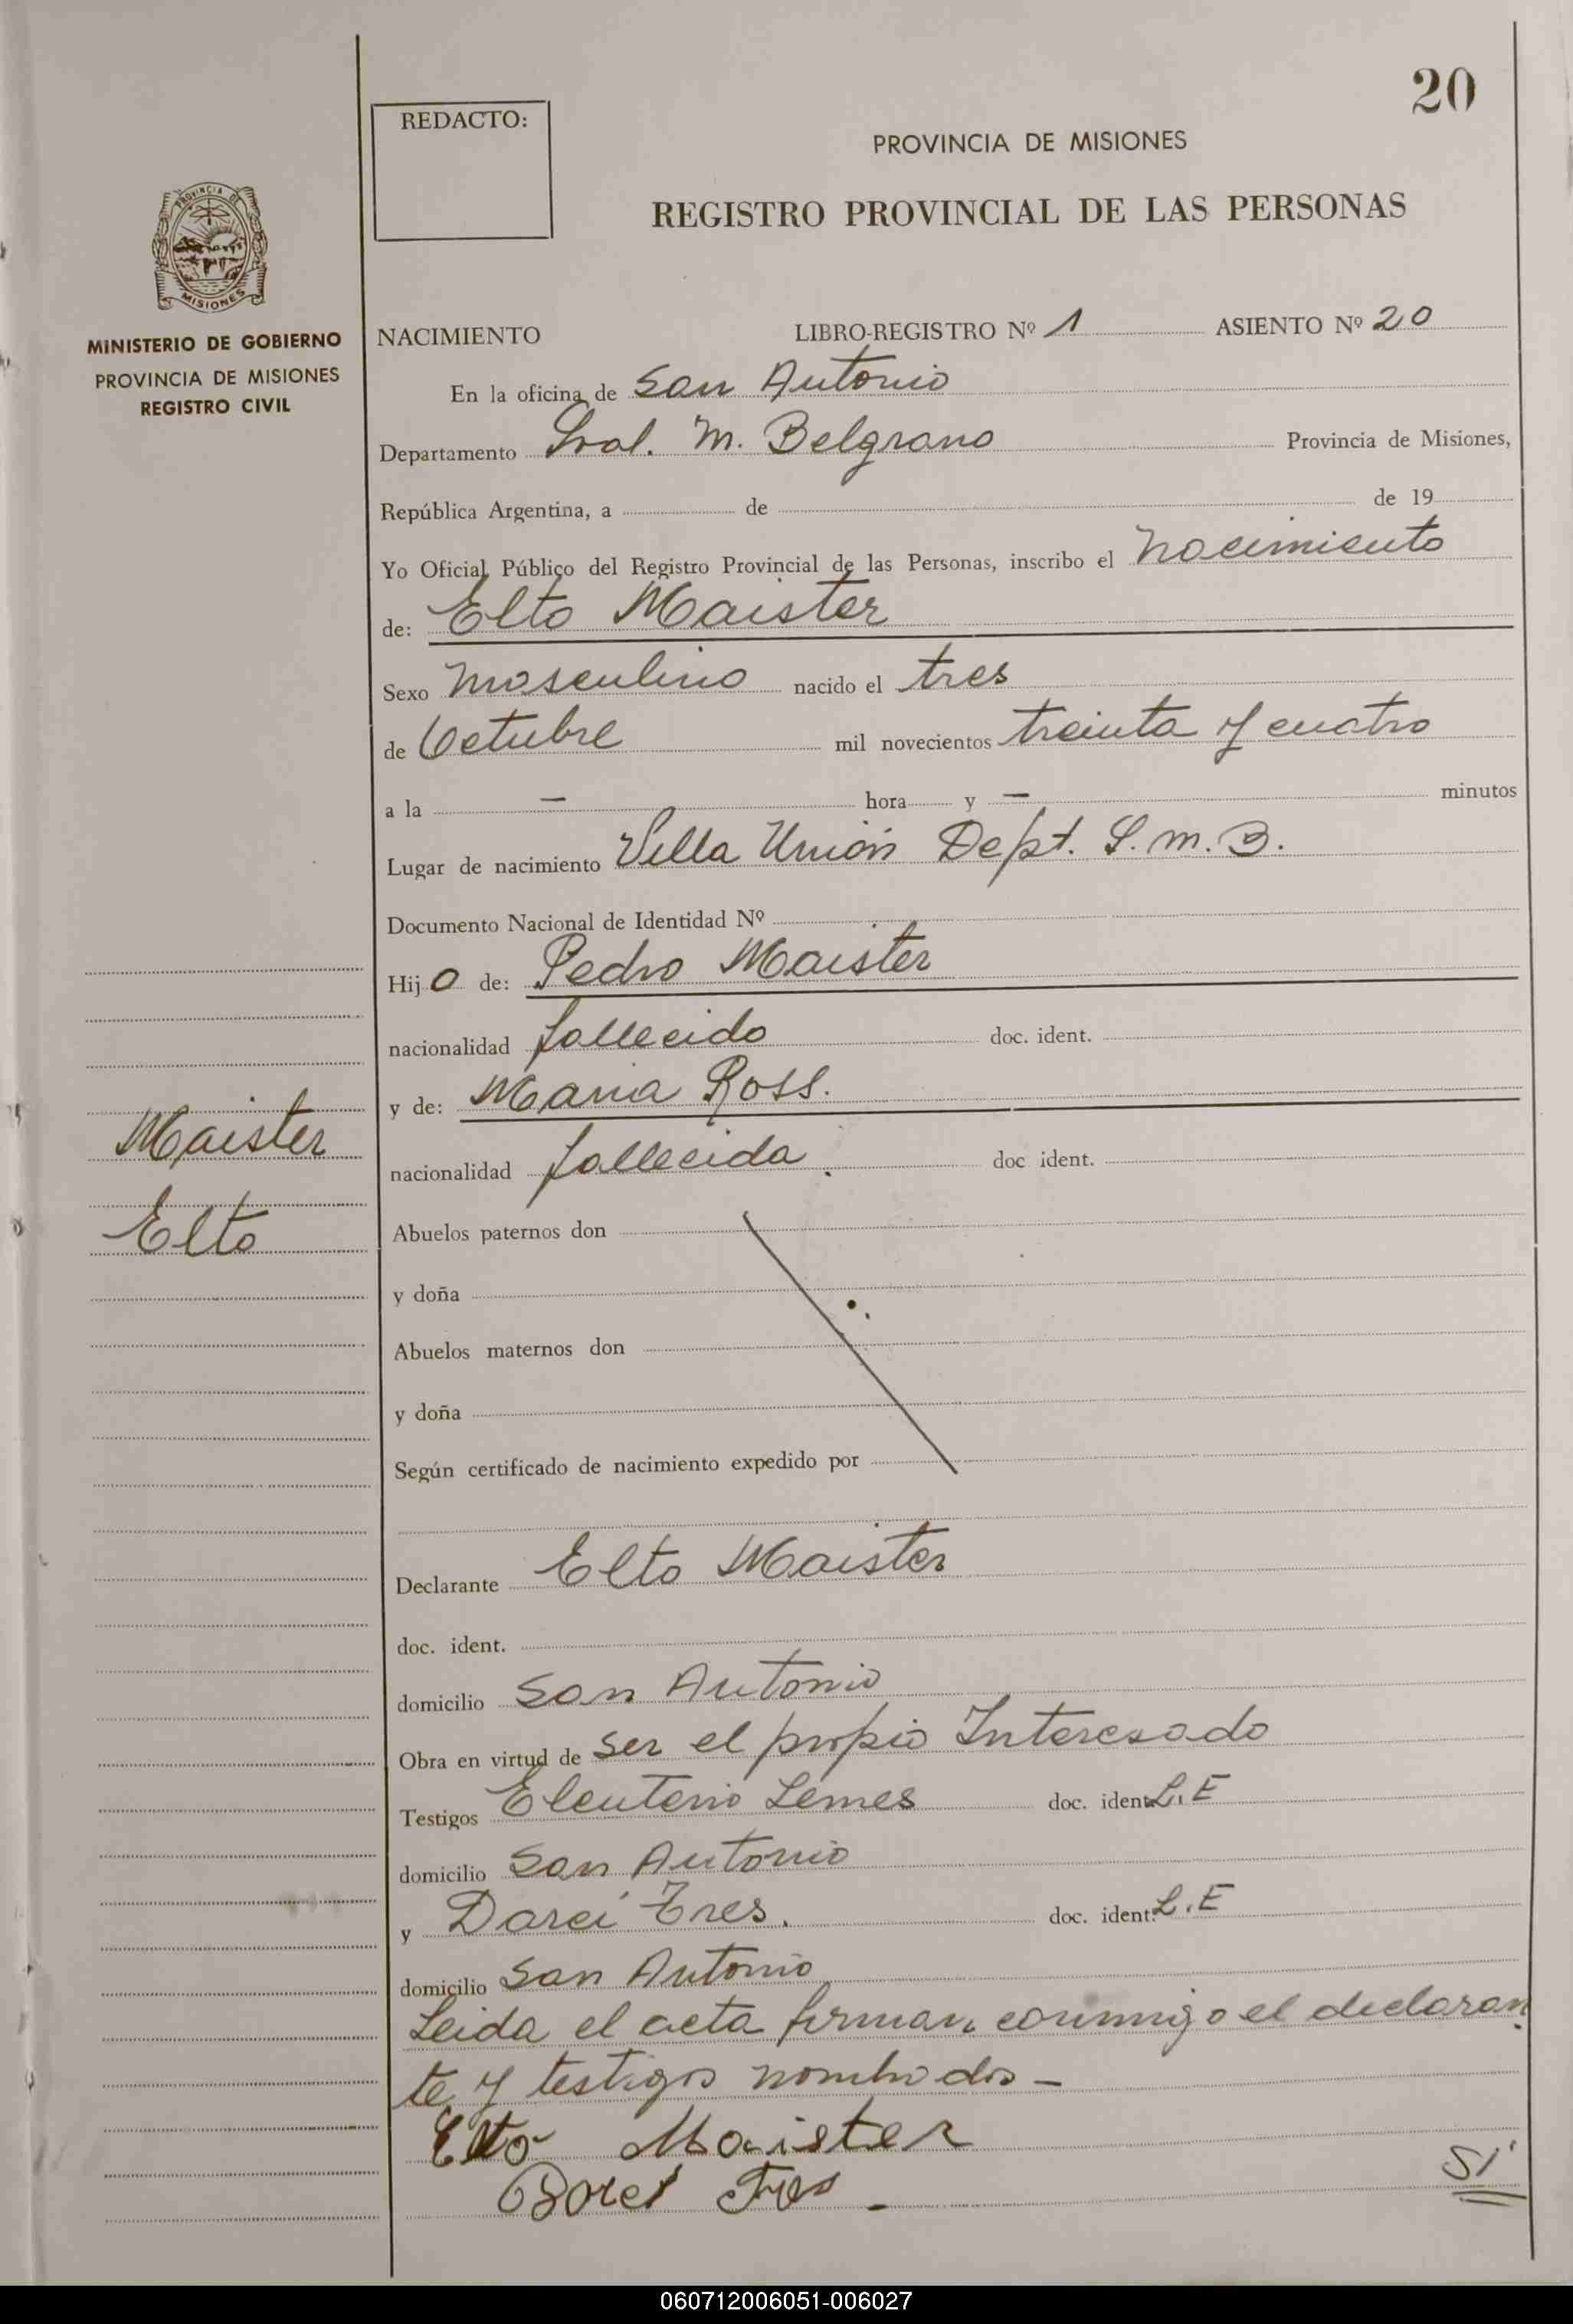 20
REDACTO:
PROVINCIA DE MISIONES
REGISTRO PROVINCIAL DE LAS PERSONAS
PROVINCIA DE
MISIONES
MINISTERIO DE GOBIERNO
PROVINCIA DE MISIONES
REGISTRO CIVIL
NACIMIENTO LIBRO-REGISTRO Nº 1 ASIENTO Nº 20
En la oficina de San Antonio
Departamento Gral. M. Belgrano Provincia de Misiones,
República Argentina, a de de 19
Yo Oficial Público del Registro Provincial de las Personas, inscribo el nacimiento
de: Elto Maister
Sexo masculino nacido el tres
de Octubre mil novecientos treinta y cuatro
a la — hora y — minutos
Lugar de nacimiento Villa Unión Dept. G. M. B.
Documento Nacional de Identidad Nº
Hijo de: Pedro Maister
nacionalidad fallecido doc. ident.
y de: Maria Ross.
nacionalidad fallecida. doc ident.
Maister
Elto
Abuelos paternos don
y doña
Abuelos maternos don
y doña
Según certificado de nacimiento expedido por
Declarante Elto Maister
doc. ident.
domicilio San Antonio
Obra en virtud de ser el propio Interesado
Testigos Eleuterio Lemes doc. ident. L.E
domicilio San Antonio
y Darci Tres. doc. ident. L.E
domicilio San Antonio
Leida el acta firman conmigo el declaran
te y testigos nombrados —
Elto Maister
Darci Tres —
SI
060712006051-006027